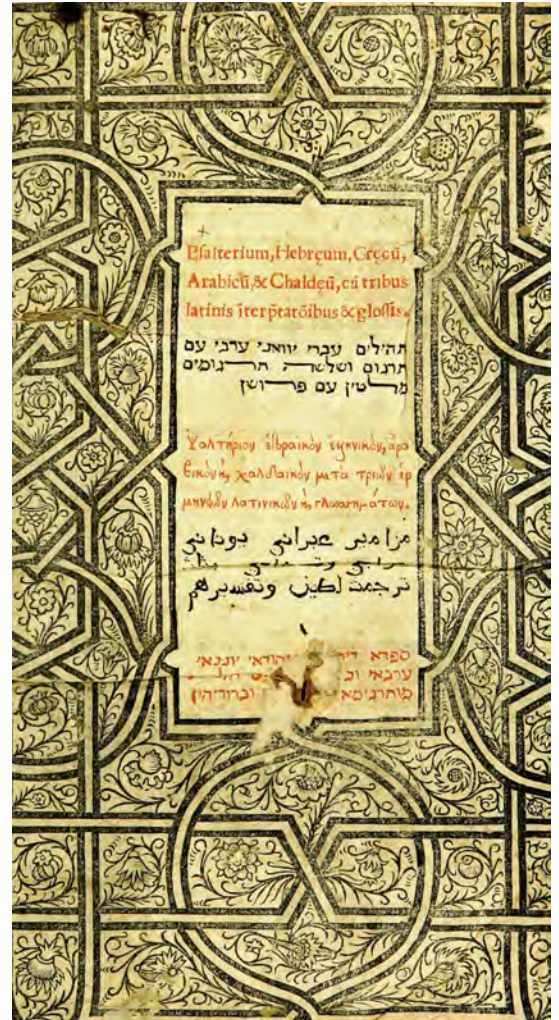 Psalterium, Hebręum, Gręcū,
Arabicū, & Chaldęū, cū tribus
latinis īterp̄tatōibus & glossis.
תהילים עברי יוואני ערבי עם
תרגום ושלשה תרגומים
מלטין עם פרושן
Ψαλτήριον ἑβραικὸν ἑλληνικὸν, ἀρα
βικὸν κ, χαλδαικὸν μετὰ τριῶν ἑρ
μηνιῶν λατινικῶν κ, γλωσημάτων.
مزامير عبراني يوناني
ترجمت لطين وتفسيرهم
ספרא יהודאי יונאי
ערבאי
וברוריהין